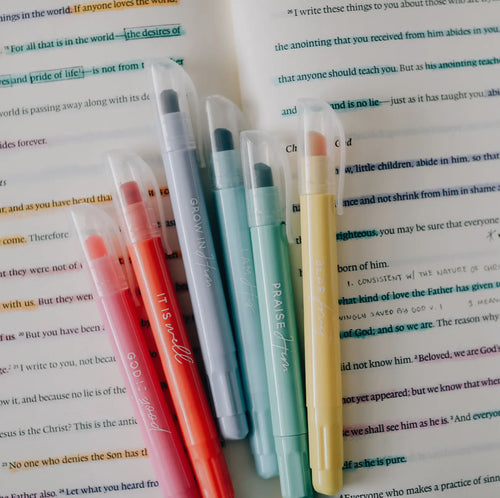 things in the world. If anyone loves the wo
15 For all that is in the world—the desires of
eyes and pride of life—is not from the Father
world is passing away along with its de
ides forever.
ar, and as you have heard that
come. Therefore
that they were not of
with us. But they went
of us. 20 But you have been
21 I write to you, not becau
ow it, and because no lie is of the
Jesus is the Christ? This is the antic
No one who denies the Son has th
e Father also. 24 Let what you heard from
26 I write these things to you about those who are try
the anointing that you received from him abides in you,
that anyone should teach you. But as his anointing teache
and is no lie—just as it has taught you, abi
God
now, little children, abide in him, so that
ence and not shrink from him in shame
righteous, you may be sure that everyone
born of him.
1. CONSISTENT W/ THE NATURE OF
what kind of love the Father has given
SAVED BY GOD V. 1
of God; and so we are. The reason why
did not know him. 2 Beloved, we are God's
not yet appeared; but we know that when
we shall see him as he is. 3 And everyone
elf as he is pure.
Everyone who makes a practice of sinn
GOD IS good
IT IS well
GROW IN Him
PRAISE Him